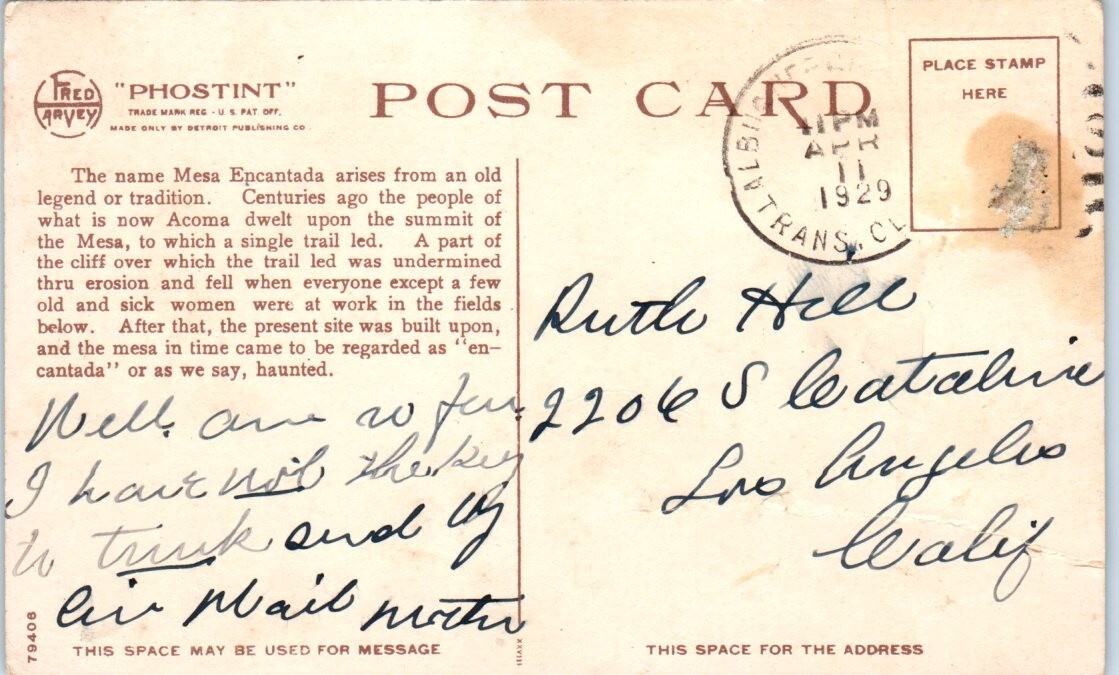 FRED HARVEY
"PHOSTINT"
TRADE MARK REG - U. S. PAT. OFF.
MADE ONLY BY DETROIT PUBLISHING CO.
POST CARD
PLACE STAMP
HERE
11 PM
APR
11
1929
TRANS. CL
The name Mesa Encantada arises from an old
legend or tradition. Centuries ago the people of
what is now Acoma dwelt upon the summit of
the Mesa, to which a single trail led. A part of
the cliff over which the trail led was undermined
thru erosion and fell when everyone except a few
old and sick women were at work in the fields
below. After that, the present site was built upon,
and the mesa in time came to be regarded as "en-
cantada" or as we say, haunted.
Well, am so far
I have not the key
to trunk send by
Air Mail Mother
Ruth Hill
2206 S Cataline
Los Angeles
Calif
79406
THIS SPACE MAY BE USED FOR MESSAGE
THIS SPACE FOR THE ADDRESS